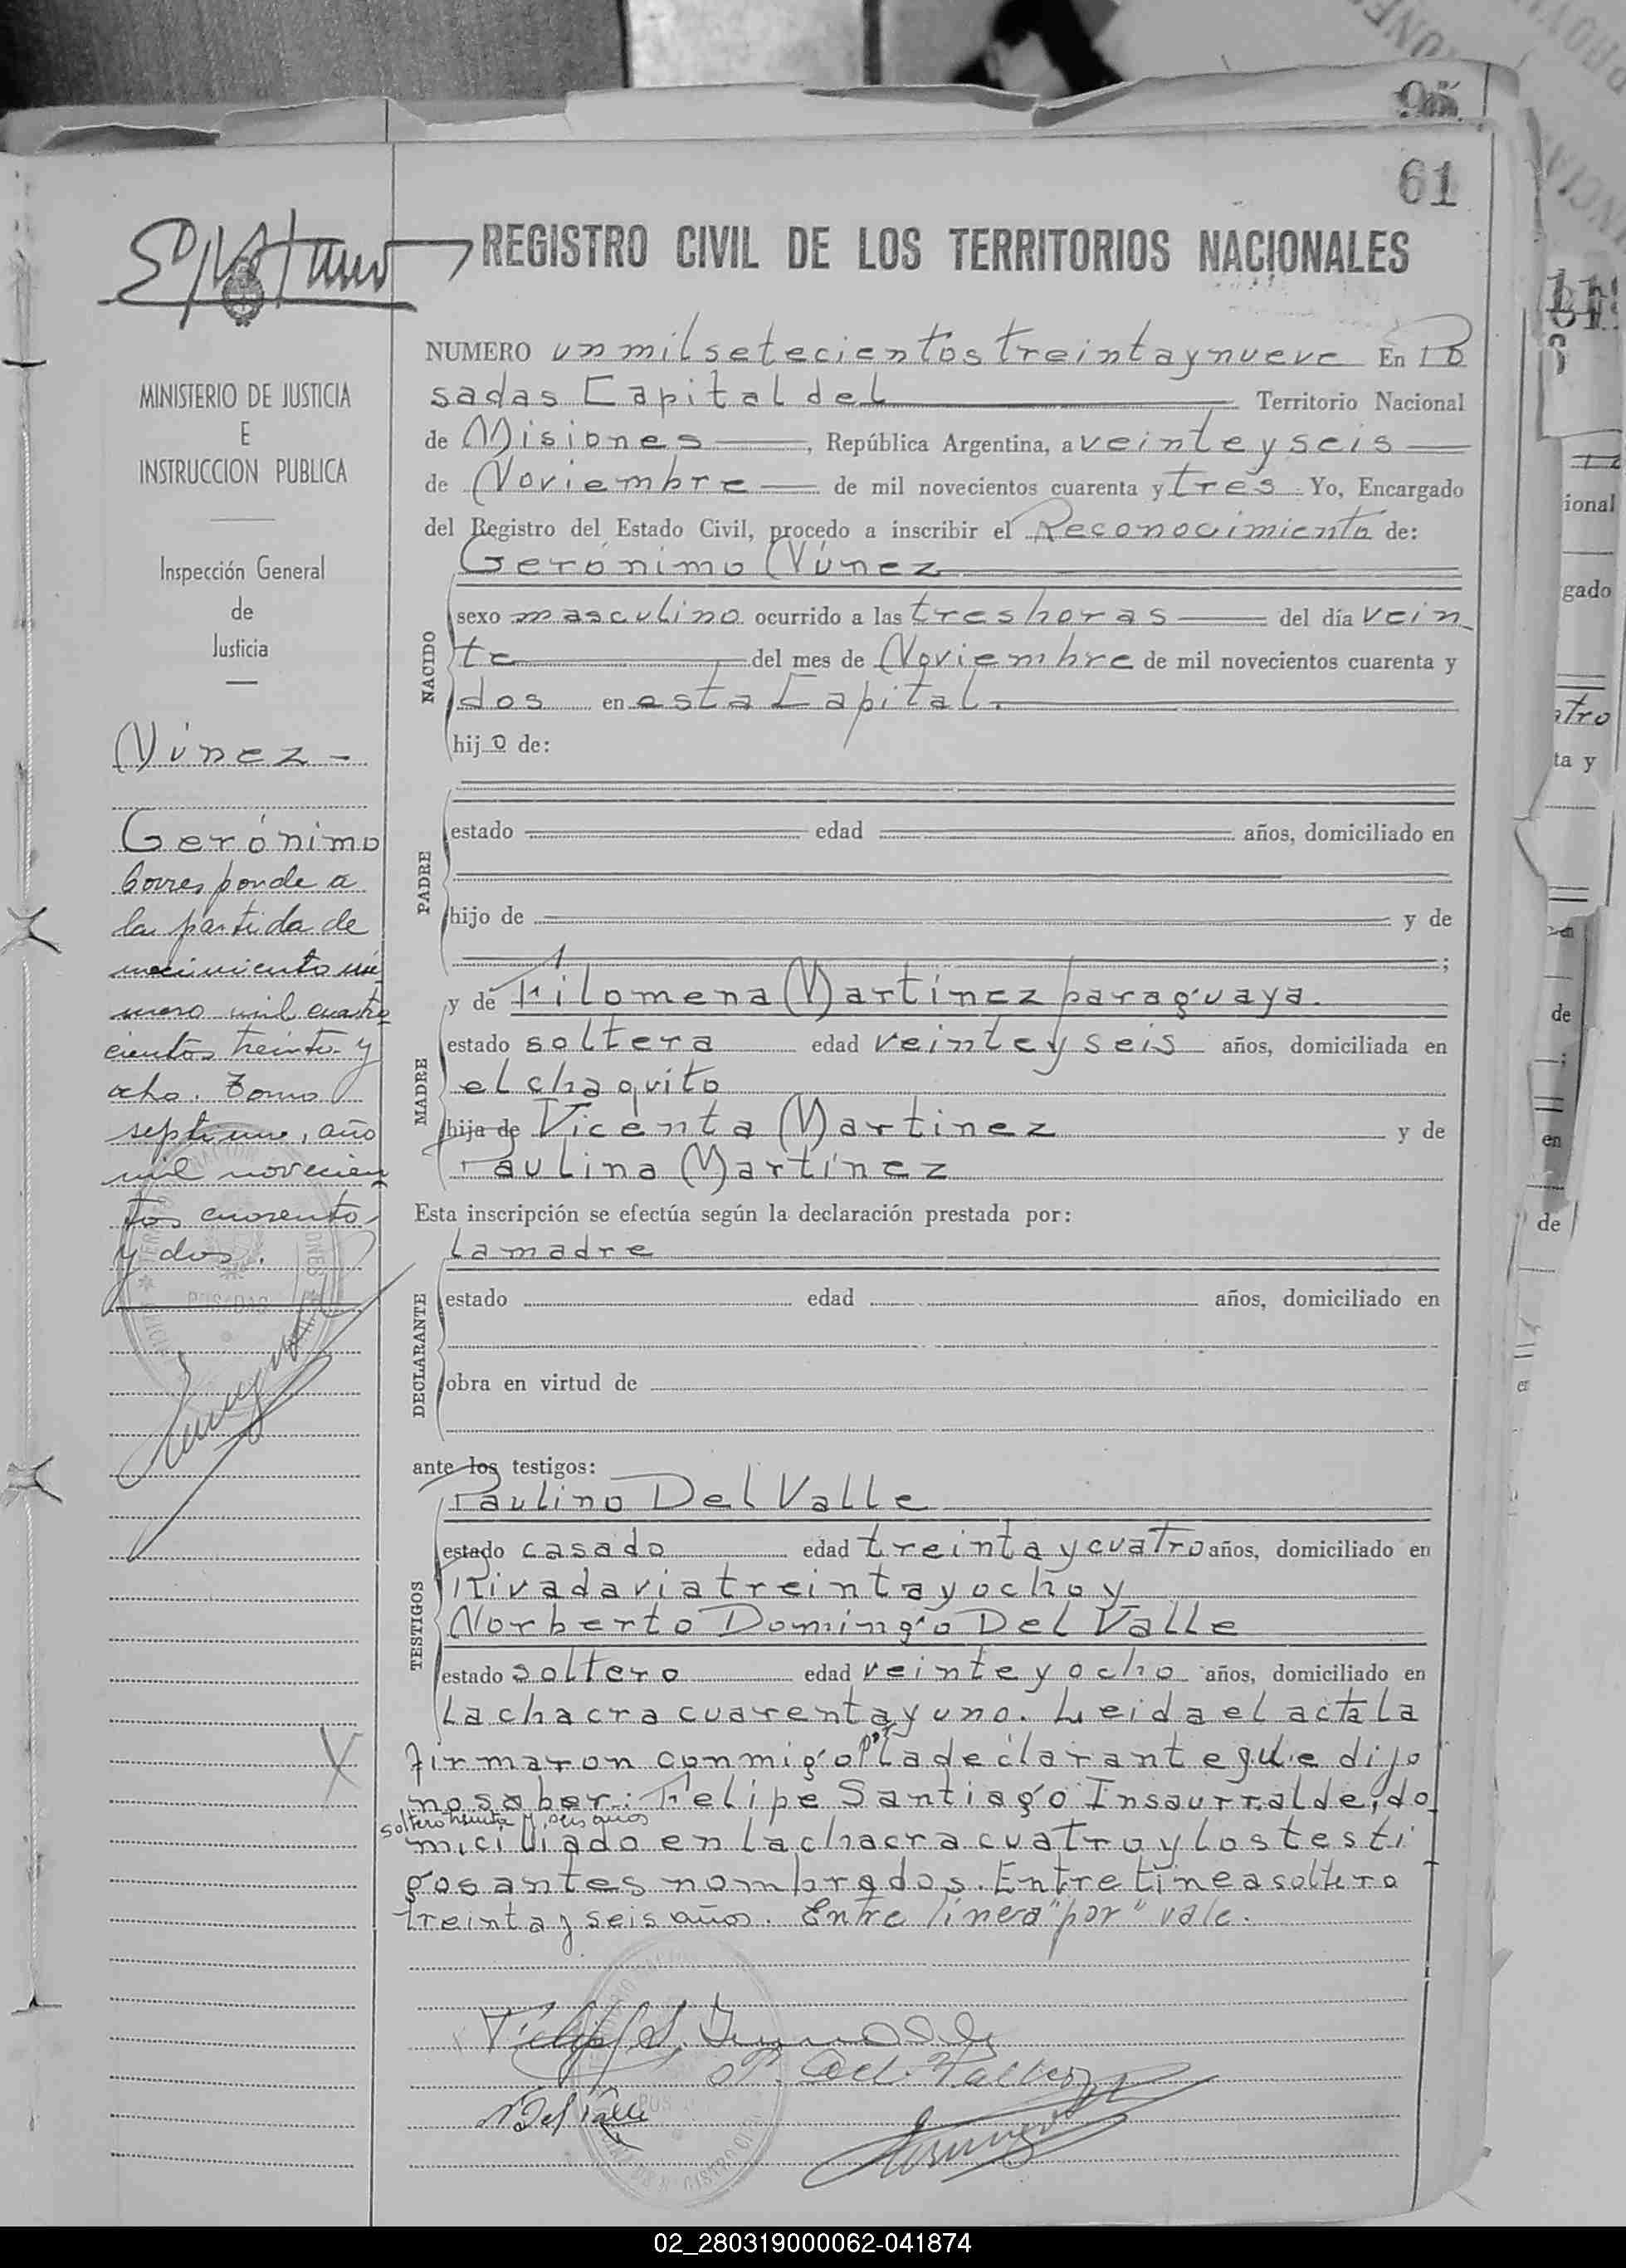 95
61
REGISTRO CIVIL DE LOS TERRITORIOS NACIONALES
MINISTERIO DE JUSTICIA
E
INSTRUCCION PUBLICA
Inspección General
de
Justicia
Núnez -
Gerónimo
Corresponde a
la partida de
nacimiento nú
mero mil cuatro
cientos treinta y
ocho. Tomo
septimo, año
mil novecien
tos cuarenta
y dos.
NUMERO un mil setecientos treinta y nueve En Po
sadas Capital del Territorio Nacional
de Misiones, República Argentina, a veinte y seis
de Noviembre de mil novecientos cuarenta y tres Yo, Encargado
del Registro del Estado Civil, procedo a inscribir el Reconocimiento de:
NACIDO
Gerónimo Núnez
sexo masculino ocurrido a las tres horas del día vein
te del mes de Noviembre de mil novecientos cuarenta y
dos en esta Capital.
hijo de:
PADRE
estado edad años, domiciliado en
hijo de y de
;
MADRE
y de Filomena Martínez paraguaya.
estado soltera edad veinte y seis años, domiciliada en
el chaquito
hija de Vicenta Martinez y de
Paulina Martínez
Esta inscripción se efectúa según la declaración prestada por:
DECLARANTE
la madre
estado edad años, domiciliado en
obra en virtud de
ante los testigos:
TESTIGOS
Paulino Del Valle
estado casado edad treinta y cuatro años, domiciliado en
Rivadavia treinta y ocho y
Norberto Domingo Del Valle
estado soltero edad veinte y ocho años, domiciliado en
la chacra cuarenta y uno. Leida el acta la
firmaron conmigo por la declarante que dijo
no saber: Felipe Santiago Insaurralde, do
soltero treinta y seis años
miciliado en la chacra cuatro y los testi
gos antes nombrados. Entre linea soltero
treinta y seis años. Entre linea "por" vale.
Felipe S. Insaurralde
P. Del Valle
N Del Valle
POSADAS
02_280319000062-041874